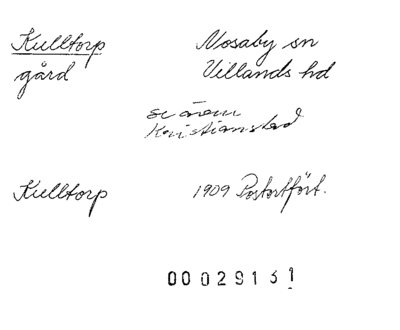 Kulltorp Mosaby sn
gård Villands hd
se även
Kristianstad
Kulltorp 1909 Postortfört.
00029131